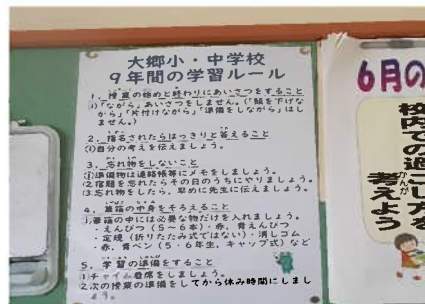 大郷小・中学校
9年間の学習ルール
1．授業の始めと終わりにあいさつをすること
①「ながら」あいさつをしません。(「頭を下げな
がら」「片付けながら」「準備をしながら」はし
ません。)
2．指名されたらはっきりと答えること
①自分の考えを伝えましょう。
3．忘れ物をしないこと
①準備物は連絡帳等にメモをしましょう。
②宿題を忘れたらその日のうちにやりましょう。
③忘れ物をしたら、早めに先生に伝えましょう。
4．筆箱の中身をそろえること
①筆箱の中には必要な物だけを入れましょう。
・えんぴつ(5～6本)・赤、青えんぴつ
・定規(折りたたみ式ではない)・消しゴム
・赤、青ペン(5・6年生、キャップ式)など
5．学習の準備をすること
①チャイム着席をしましょう。
②次の授業の準備をしてから休み時間にしまし
ょう。
6月の
校内での過ごし方を
かんが
考えよう